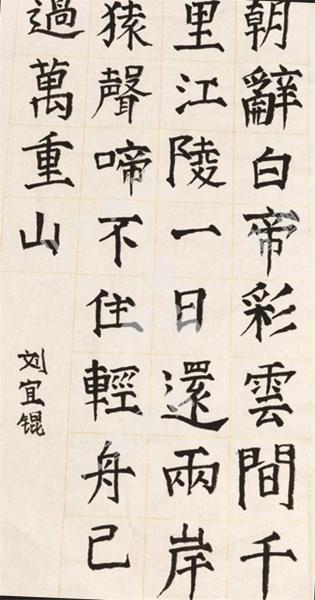 朝辭白帝彩雲間千
里江陵一日還兩岸
猿聲啼不住輕舟已
過萬重山
刘宜锟